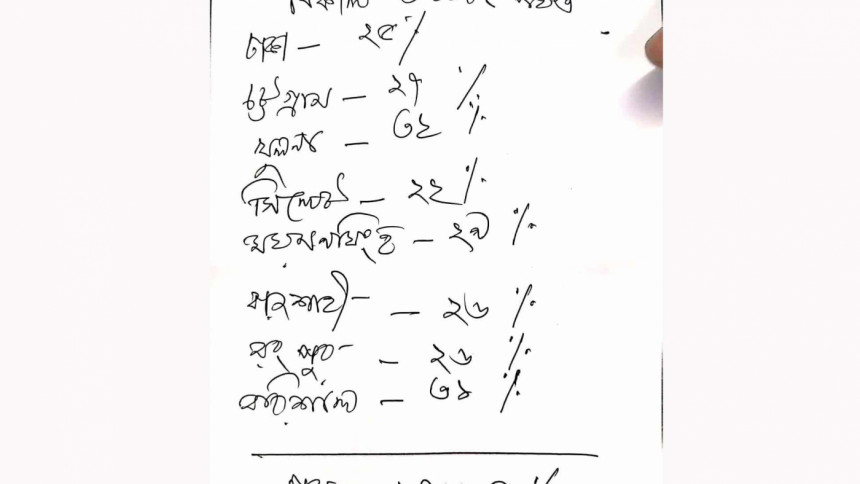 ঢাকা - ২৫%
চট্টগ্রাম - ২৭ %
খুলনা - ৩২ %
সিলেট - ২২ %
ময়মনসিংহ - ২৯ %
রাজশাহী - - ২৬ %
রংপুর - - ২৬ %
বরিশাল - ৩১ %